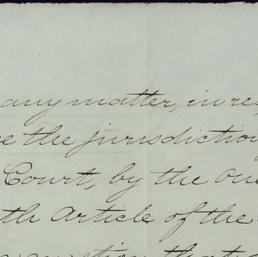 any matter, in re
e the jurisdiction
Court, by the one
th Article of the
that